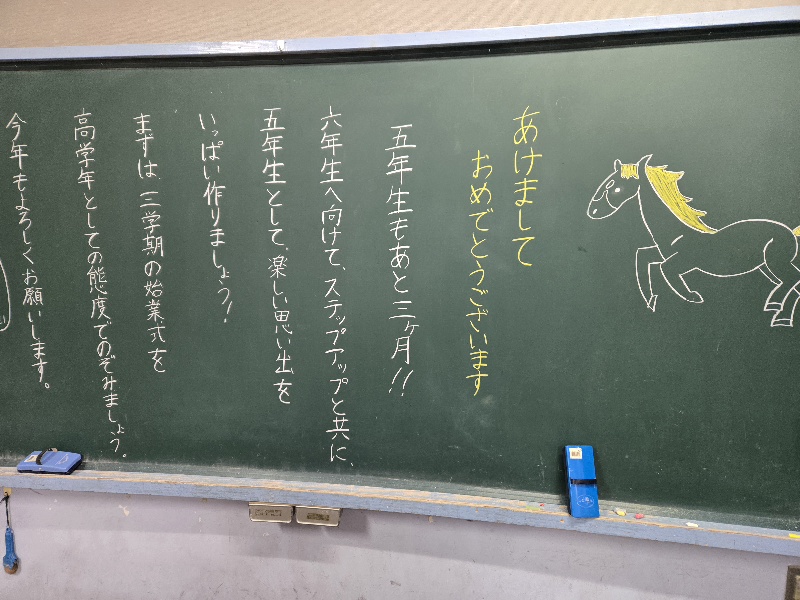 あけまして
おめでとうございます
五年生もあと三ヶ月!!
六年生へ向けて、ステップアップと共に、
五年生として、楽しい思い出を
いっぱい作りましょう!
まずは、三学期の始業式を
高学年としての態度でのぞみましょう。
今年もよろしくお願いします。